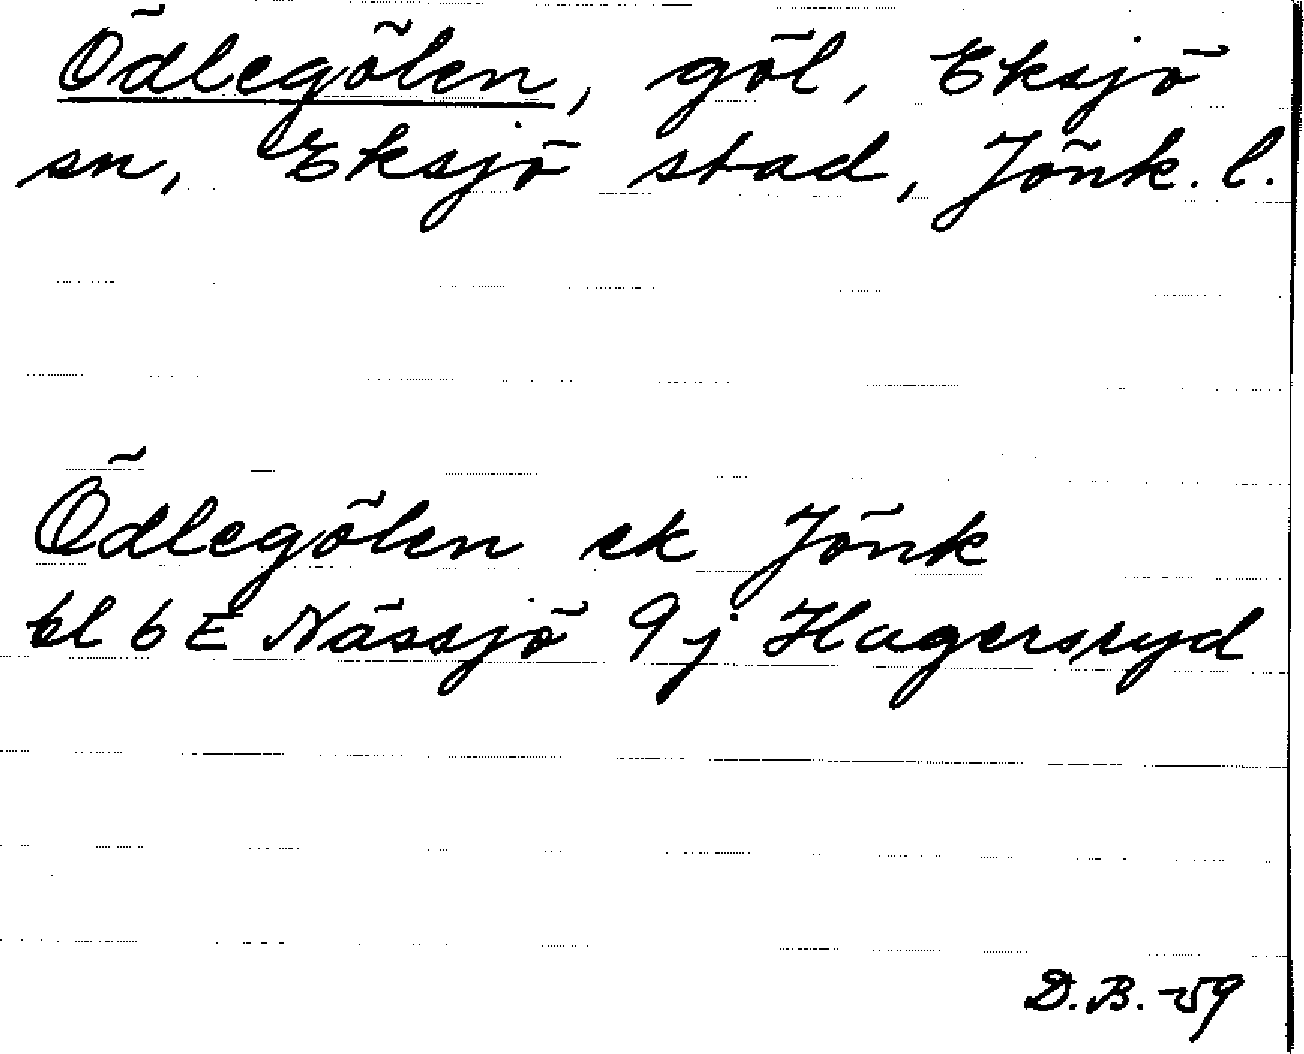 Ödlegölen, göl, Eksjö
sn, Eksjö stad, Jönk. l.
Ödlegölen ek Jönk
bl 6 E Nässjö 9j Hagersryd
D.B. -59